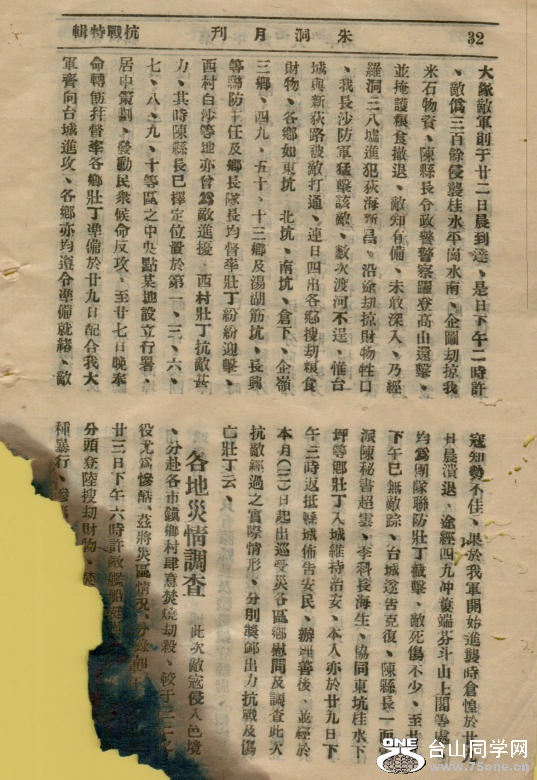 32
朱洞月刊
抗戰特輯
大綠敵軍則于廿二日晨到達、是日下午二時許
、敵僞三百餘侵襲桂水平崗水南、企圖刧掠我
米石物資、陳縣長令政警警察躍登高山還擊、
並掩護糧食撤退、敵知有備、未敢深入、乃經
羅洞三八墟進犯荻海新昌、沿途刧掠財物牲口
、我長沙防軍猛擊該敵、數次渡河不逞、惟台
城與新荻路被敵打通、連日四出各鄉搜刧糧食
財物、各鄉如東坑、北坑、南坑、倉下、企嶺
三鄉、四九、五十、十三鄉及湯湖筋坑、長興
等聯防主任及鄉長隊長均督率壯丁紛紛迎擊、
西村白沙等地亦曾爲敵進擾、西村壯丁抗敵甚
力、其時陳縣長已擇定位置於第一、三、六、
七、八、九、十等區之中央點某地設立行署、
居中策劃、發動民衆候命反攻、至廿七日晚奉
命轉飭并督率各鄉壯丁準備於廿九日配合我大
軍齊向台城進攻、各鄉亦均遵令準備就緒、敵
寇知勢不佳、果於我軍開始進襲時倉惶於廿
日晨潰退、途經四九冲蔞端芬斗山上閣等處
均爲團隊聯防壯丁截擊、敵死傷不少、至廿
下午已無敵踪、台城遂告克復、陳縣長一面
派陳秘書超雲、李科長海生、協同東坑桂水下
坪等鄉壯丁入城維持治安、本人亦於廿九日下
午三時返抵縣城佈告安民、辦理善後、並經於
本月(三)日起出巡受災各區鄉慰問及調查此次
抗敵經過之實際情形、分別獎卹出力抗戰及傷
亡壯丁云、
各地災情調查
此次敵寇侵入邑境
、分赴各市鎮鄉村肆意焚燒刧殺、較于三二之
役尤爲慘酷、茲將災區情况、分錄如
廿三日下午六時許敵艦船艇
分頭登陸搜刧財物、
種暴行、慘
ONE
台山同学网
www.75one.cn